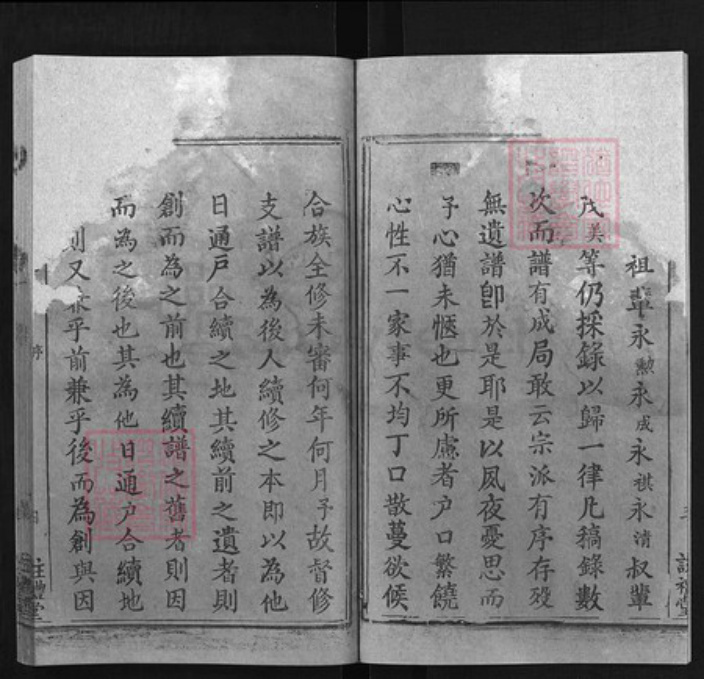 祖輩永勲永成永祺永清叔輩
茂美等仍採錄以歸一律凡稿錄數
次而譜有成局敢云宗派有序存殁
無遺譜卽於是耶是以夙夜憂思而
予心猶未愜也更所慮者户口繁饒
心性不一家事不均丁口散蔓欲候
合族全修未審何年何月予故督修
支譜以為後人續修之本即以為他
日通戶合續之地其續前之遺者則
創而為之前也其續譜之舊者則因
而為之後也其為他日通户合續地
則又兼乎前兼乎後而為創與因
序